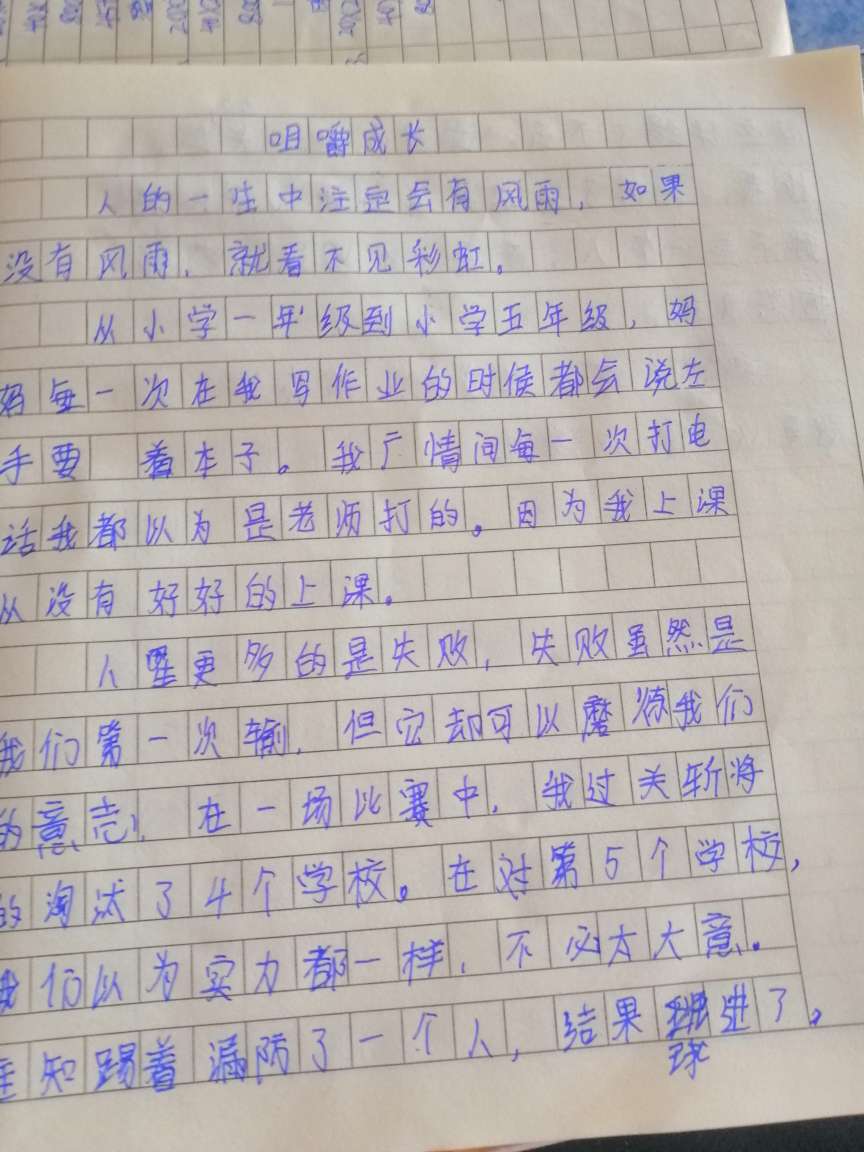 咀嚼成长
人的一生中注定会有风雨，如果
没有风雨，就看不见彩虹。
从小学一年级到小学五年级，妈
妈每一次在我写作业的时候都会说左
手要 着本子。我广情间每一次打电
话我都以为是老师打的。因为我上课
从没有好好的上课。
人 更多的是失败，失败虽然是
我们第一次输，但它却可以磨练我们
的意志，在一场比赛中，我过关斩将
的淘汰了4个学校。在对第5个学校，
我们以为实力都一样，不必太大意。
知踢着漏防了一个人，结果球进了。